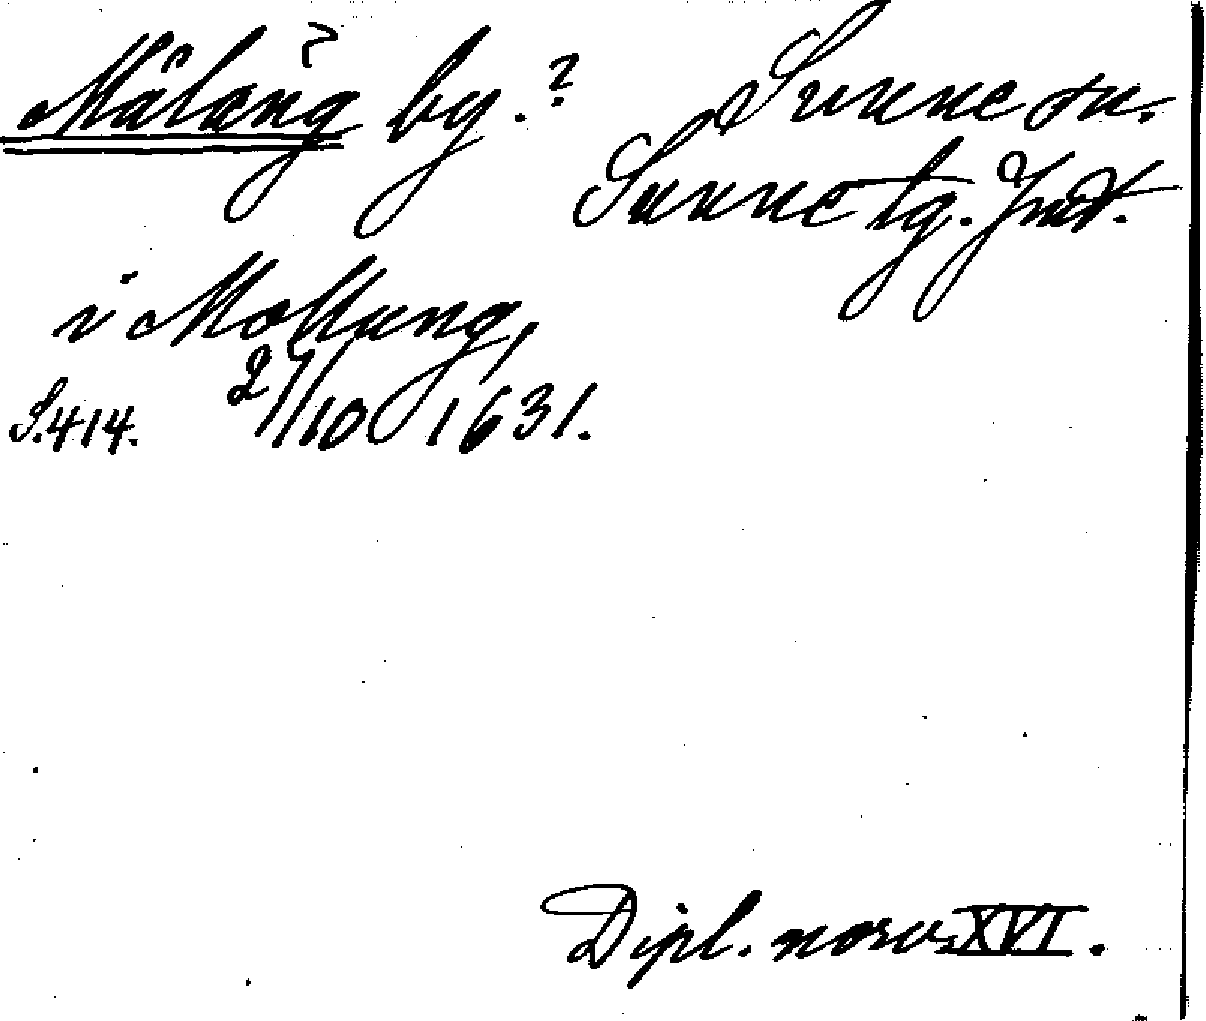 Målång by.? Sunne sn.
?
Sunne tg. Jmt.
i Mollung,
S. 414. 2/10 1631.
Dipl. norv. XVI.